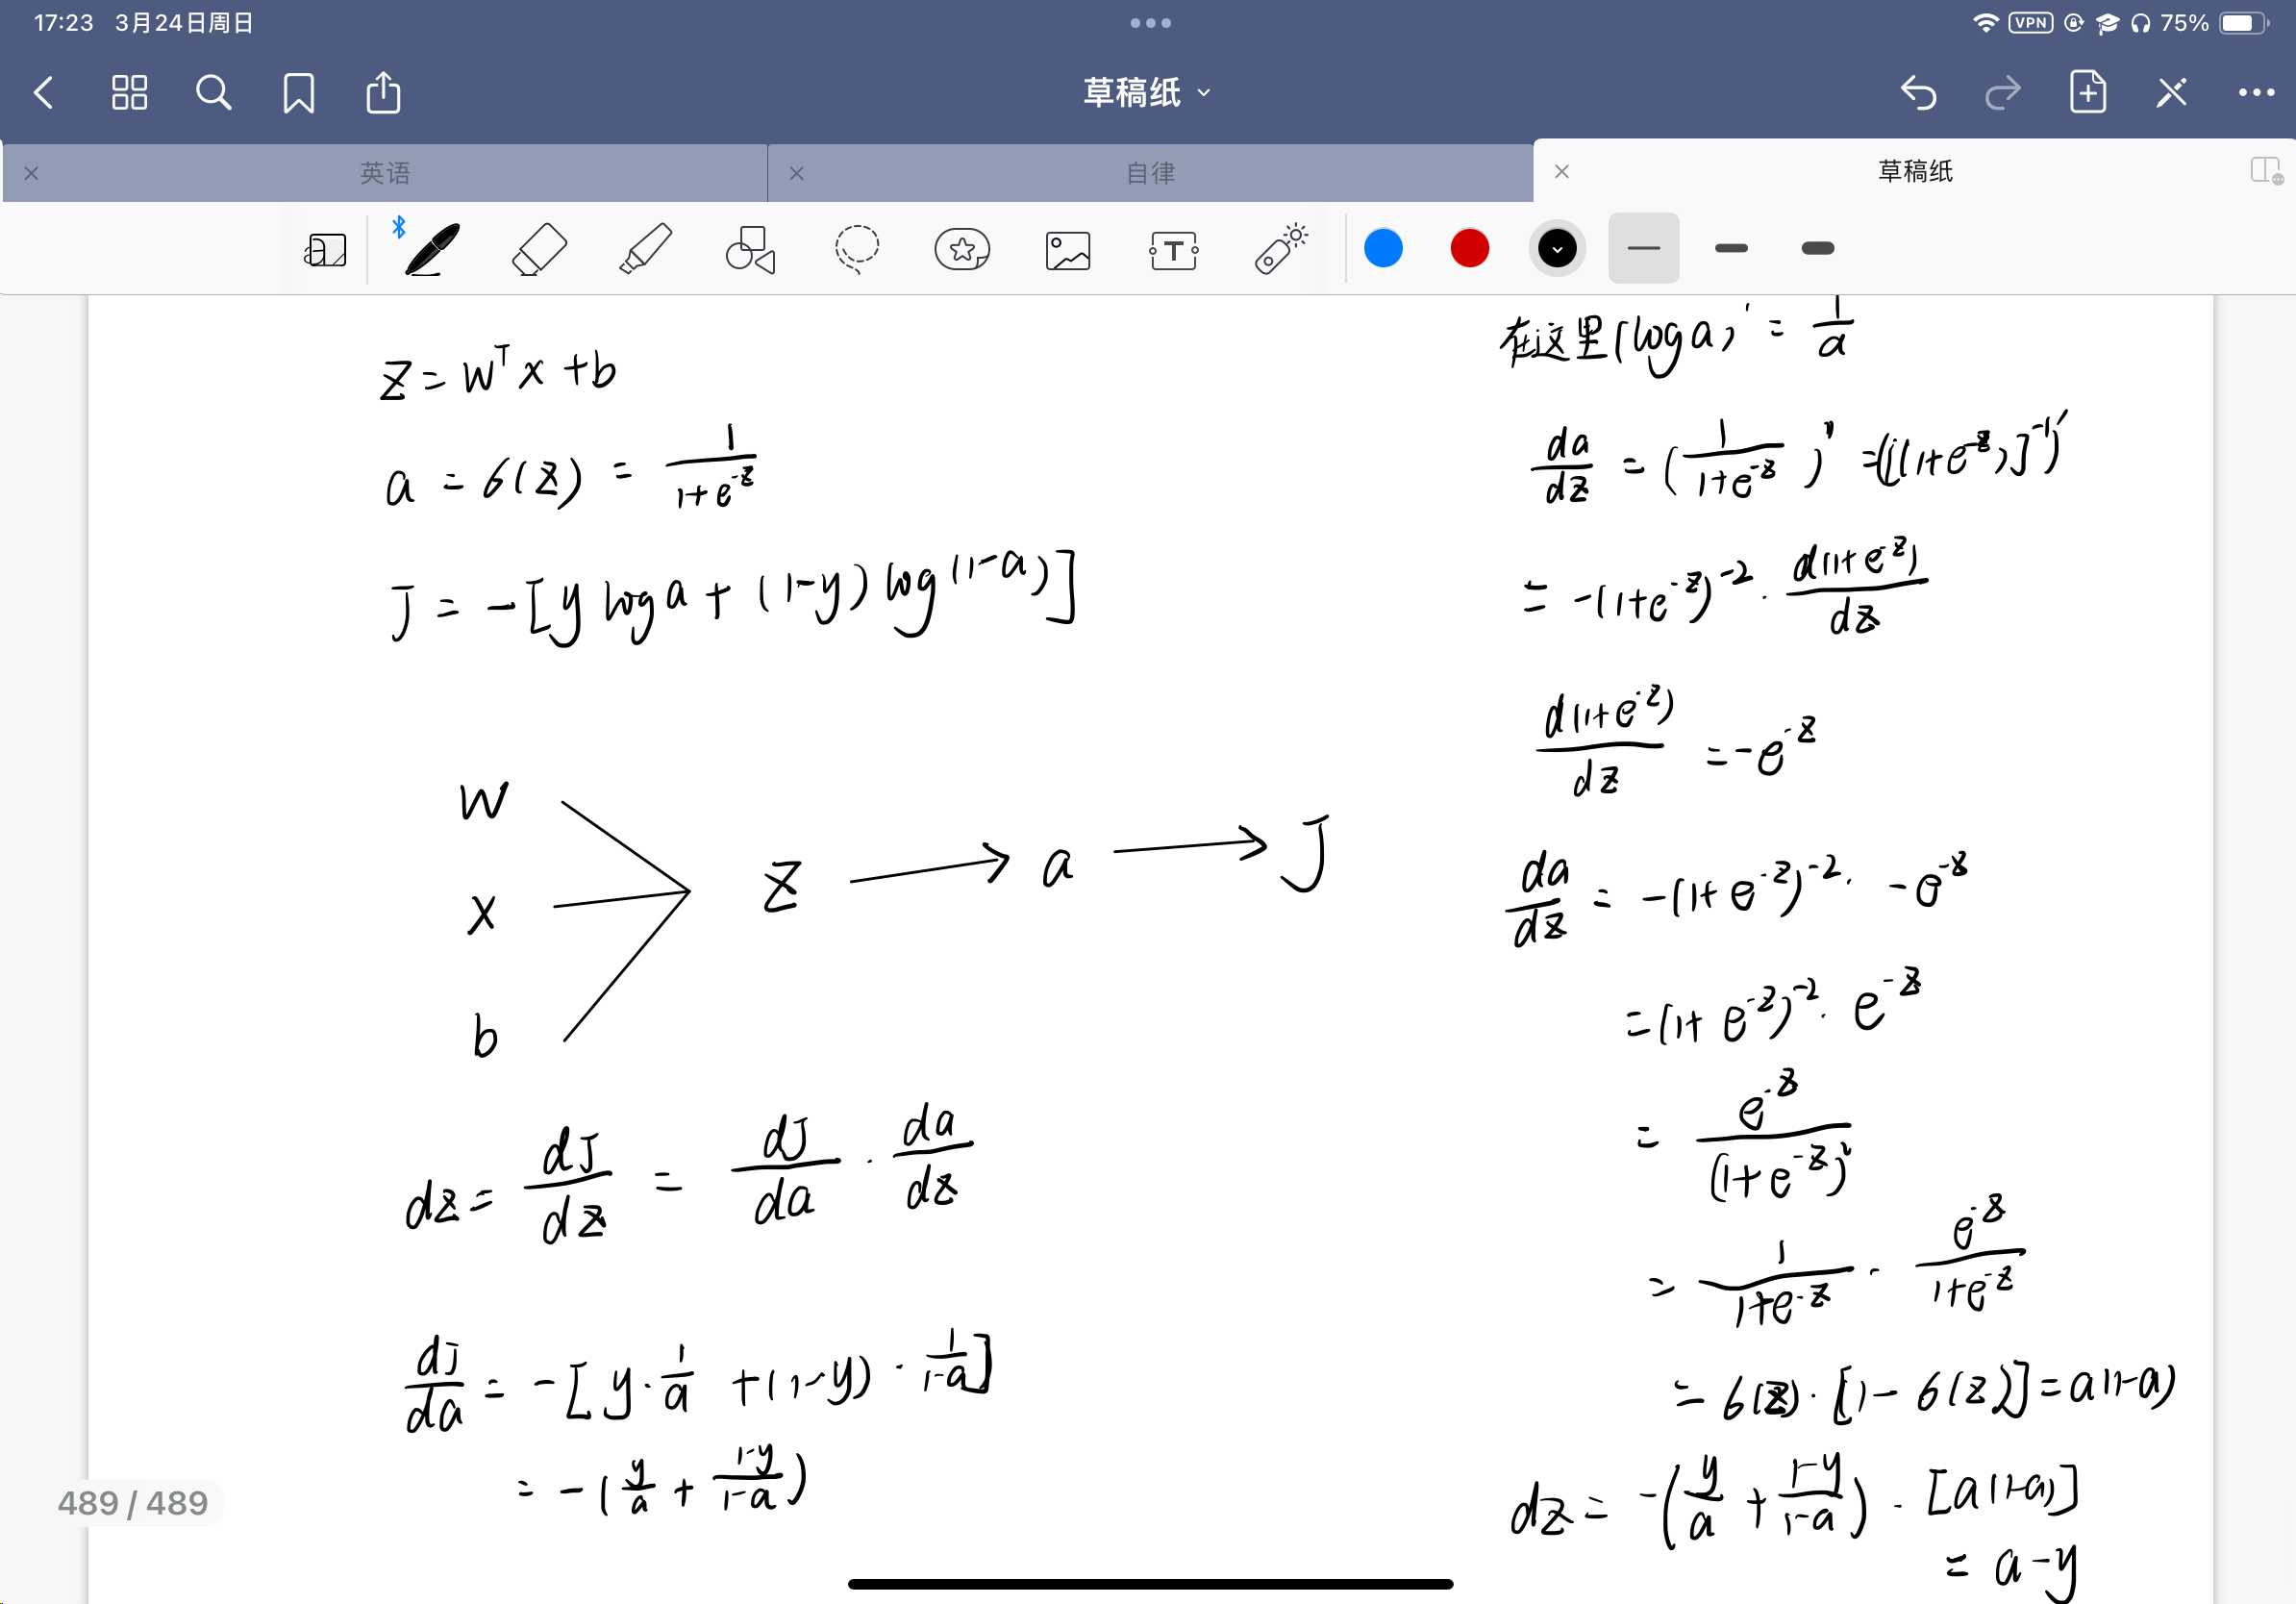 17:23 3月24日周日
VPN 75%
草稿纸
英语
自律
草稿纸
T
z = w^T x + b
a = 6(z) = 1/(1+e^-z)
J = -[y log a + (1-y) log(1-a)]
w
x
b
z → a → J
dz = dJ/dz = dJ/da · da/dz
dJ/da = -[y·1/a + (1-y)·1/(1-a)]
= -(y/a + (1-y)/(1-a))
489 / 489
在这里(log a)' = 1/a
da/dz = (1/(1+e^-z))' = ([(1+e^-z)]^-1)'
= -(1+e^-z)^-2 · d(1+e^-z)/dz
d(1+e^-z)/dz = -e^-z
da/dz = -(1+e^-z)^-2 · -e^-z
= (1+e^-z)^-2 · e^-z
= e^-z/(1+e^-z)^2
= 1/(1+e^-z) · e^-z/(1+e^-z)
= 6(z)·[1-6(z)] = a(1-a)
dz = -(y/a + (1-y)/(1-a)) · [a(1-a)]
= a-y